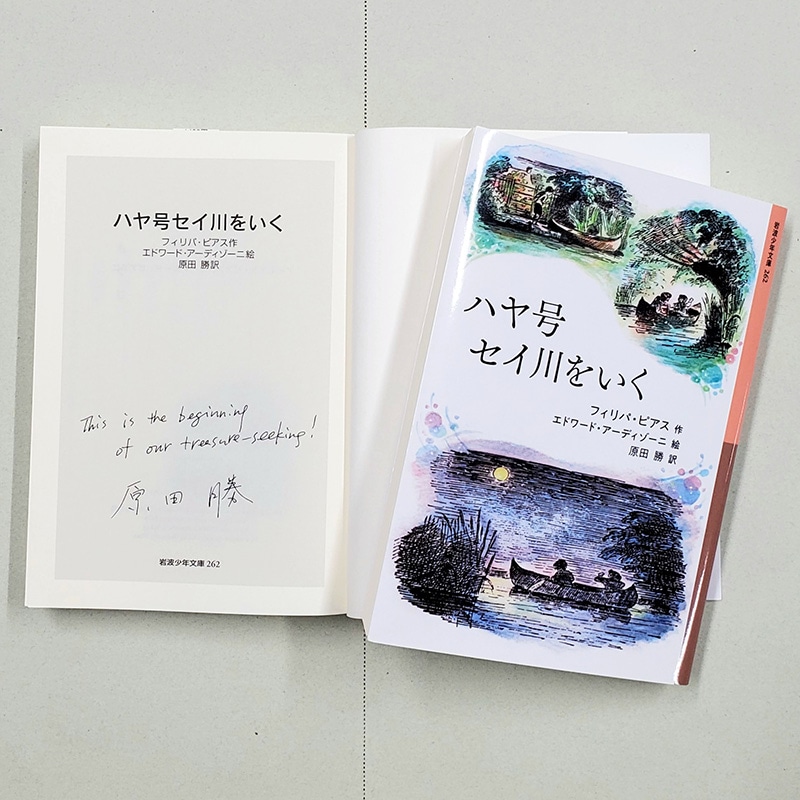 ハヤ号セイ川をいく
フィリパ・ピアス作
エドワード・アーディゾーニ絵
原田 勝訳
This is the beginning
of our treasure-seeking!
原田 勝
岩波少年文庫 262
ハヤ号
セイ川をいく
フィリパ・ピアス 作
エドワード・アーディゾーニ 絵
原田 勝 訳
岩波少年文庫 262